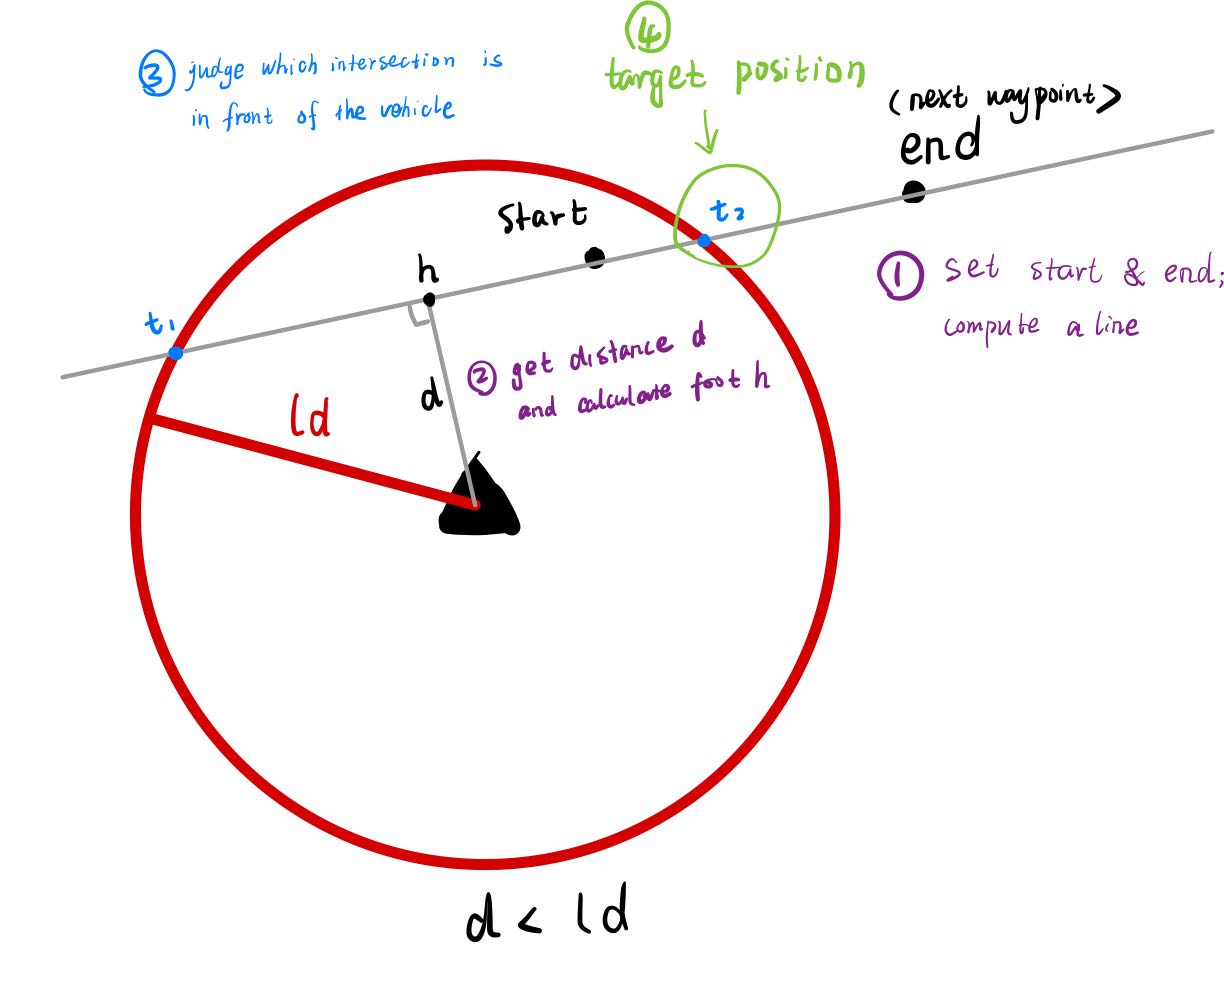 ③ judge which intersection is
in front of the vehicle
④
target position
(next waypoint>
end
start
t₂
h
t₁
① set start & end;
compute a line
② get distance d
and calculate foot h
d
ld
d < ld